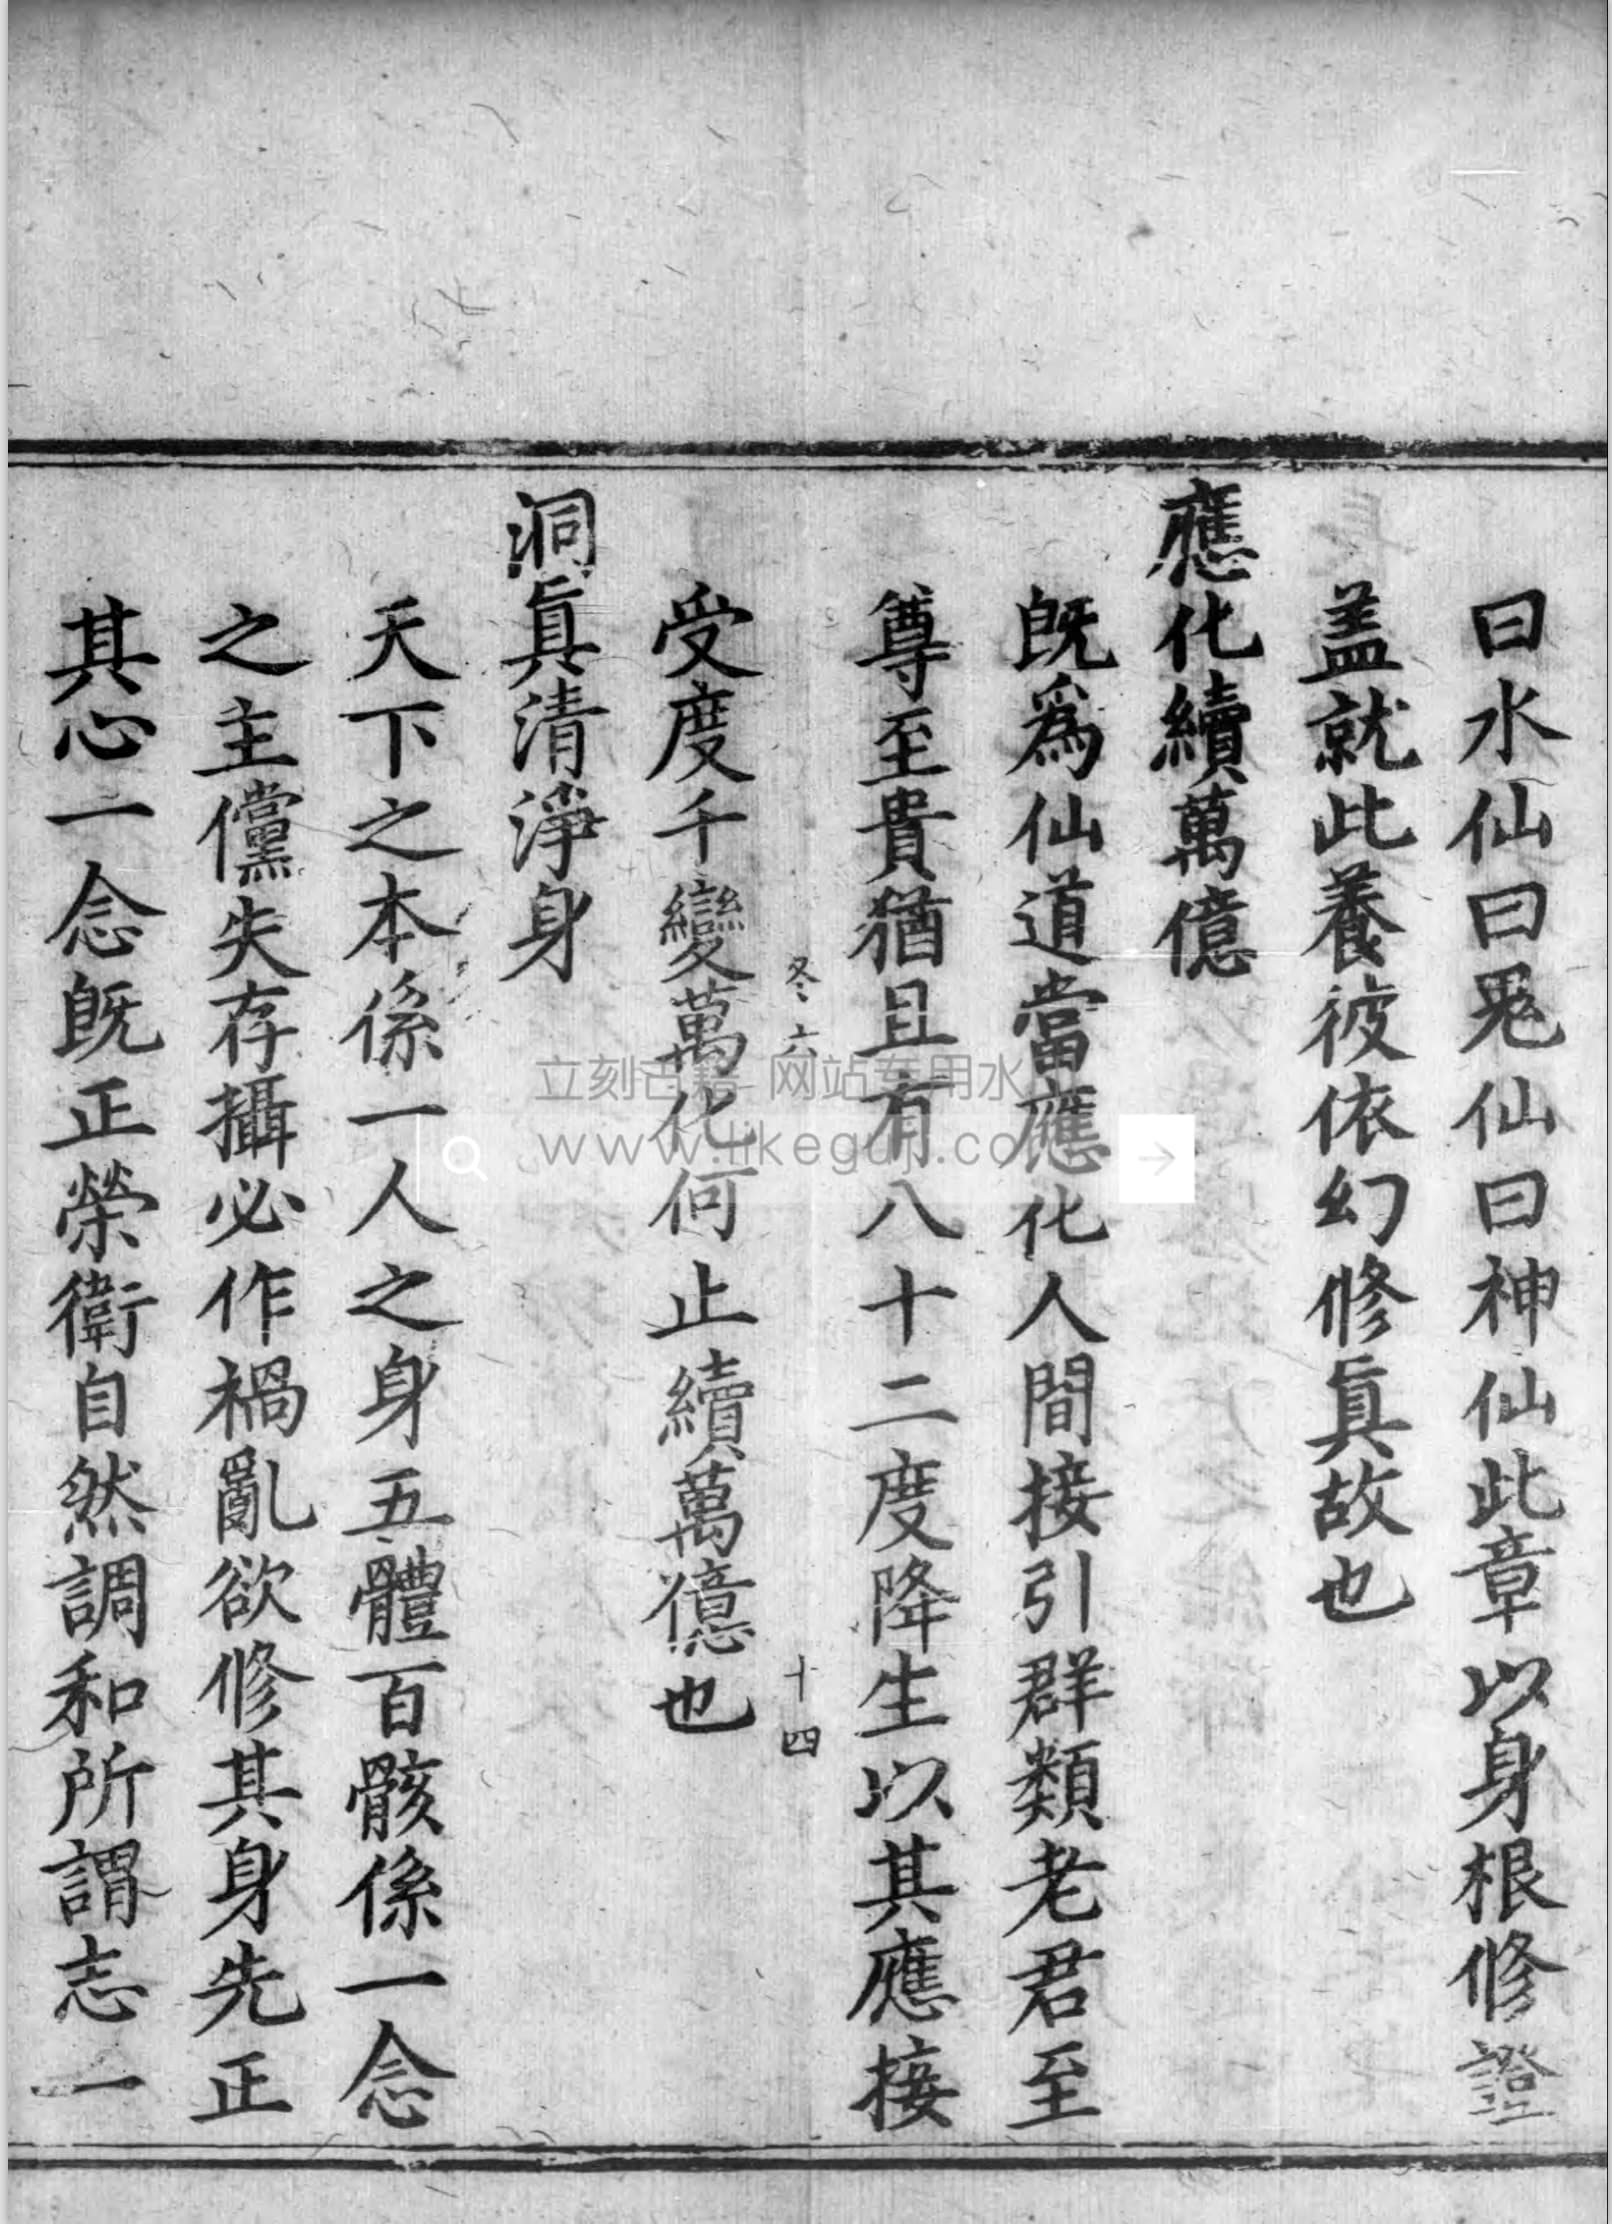 曰水仙曰鬼仙曰神仙此章以身根修證
盖就此養彼依幻修眞故也
應化續萬億
旣爲仙道當應化人間接引群類老君至
尊至貴猶且有八十二度降生以其應接
冬六
十四
受度千變萬化何止續萬億也
洞眞清淨身
天下之本係一人之身五體百骸係一念
之主儻失存攝必作禍亂欲修其身先正
其心一念旣正榮衛自然調和所謂志一
立刻古籍 网站专用水
www.likeguji.co